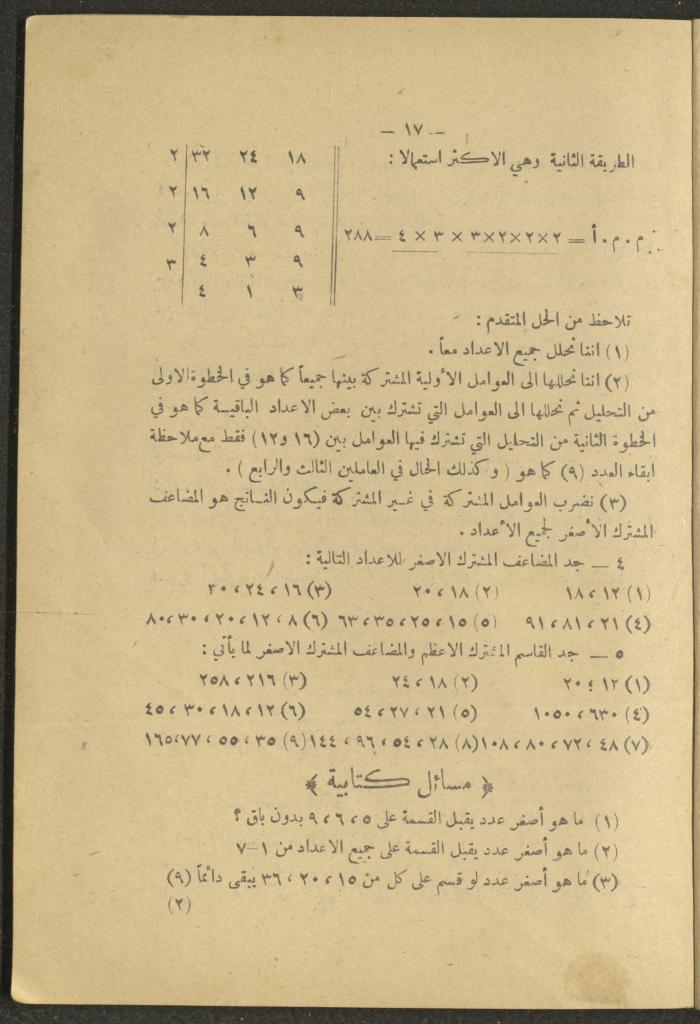 – ١٧ –
الطريقة الثانية وهي الاكثر استعمالا :
١٨ ٢٤ ٣٢ ٢
٩ ١٢ ١٦ ٢
م.م.أ = ٢×٢×٢×٣ × ٣ × ٤ = ٢٨٨
٩ ٦ ٨ ٢
٩ ٣ ٤ ٣
٣ ١ ٤
تلاحظ من الحل المتقدم :
(١) اننا نحلل جميع الاعداد معاً .
(٢) اننا نحللها الى العوامل الأولية المشتركة بينها جميعاً كما هو في الخطوة الاولى
من التحليل ثم نحللها الى العوامل التي تشترك بين بعض الاعداد الباقيـة كما هو في
الخطوة الثانية من التحليل التي تشترك فيها العوامل بين (١٦ و١٢) فقط مع ملاحظة
ابقاء العدد (٩) كما هو ( وكذلك الحال في العاملين الثالث والرابع ) .
(٣) نضرب العوامل المشتركة في غـير المشتركة فيكون النـاتج هو المضاعف
المشترك الأصغر لجميع الأعداد .
٤ – جد المضاعف المشترك الاصغر للاعداد التالية :
(١) ١٢ ، ١٨ (٢) ١٨ ، ٢٠ (٣) ١٦ ، ٢٤ ، ٣٠
(٤) ٢١ ، ٨١ ، ٩١ (٥) ١٥ ، ٢٥ ، ٣٥ ، ٦٣ (٦) ٨ ، ١٢ ، ٢٠ ، ٣٠ ، ٨٠
٥ – جد القاسم المشترك الاعظم والمضاعف المشترك الاصغر لما يأتي :
(١) ١٢ ؛ ٢٠ (٢) ١٨ ، ٢٤ (٣) ٢١٦ ، ٢٥٨
(٤) ٦٣٠ ، ١٠٥٠ (٥) ٢١ ، ٢٧ ، ٥٤ (٦) ١٢ ، ١٨ ، ٣٠ ، ٤٥
(٧) ٤٨ ، ٧٢ ، ٨٠ ، ١٠٨ (٨) ٢٨ ، ٥٤ ، ٩٦ ، ١٤٤ (٩) ٣٥ ، ٥٥ ، ٧٧ ، ١٦٥
﴿ مسائل كتابية ﴾
(١) ما هو أصغر عدد يقبل القسمة على ٥ ، ٦ ، ٩ بدون باق ؟
(٢) ما هو أصغر عدد يقبل القسمة على جميع الاعداد من ١–٧
(٣) ما هو أصغر عدد لو قسم على كل من ١٥ ، ٢٠ ، ٣٦ يبقى دائماً (٩)
(٢)